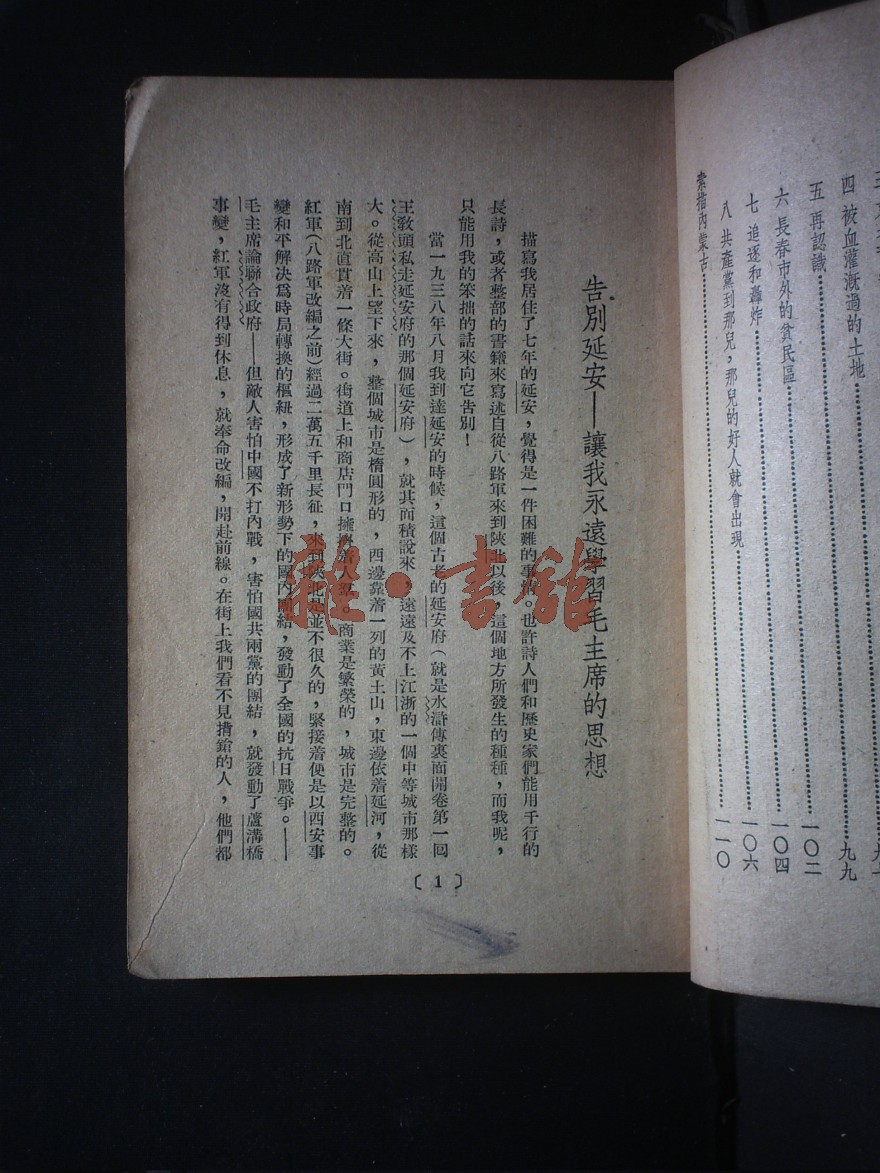 四 被血灌漑過的土地 九九
五 再認識 一〇二
六 長春市外的貧民區 一〇四
七 追逐和轟炸 一〇六
八 共產黨到那兒，那兒的好人就會出現 一一〇
素描內蒙古
告別延安—讓我永遠學習毛主席的思想
描寫我居住了七年的延安，覺得是一件困難的事情。也許詩人們和歷史家們能用千行的
長詩，或者整部的書籍來寫述自從八路軍來到陝北以後，這個地方所發生的種種，而我呢，
只能用我的笨拙的話來向它告別！
當一九三八年八月我到達延安的時候，這個古老的延安府（就是水滸傳裏面開卷第一回
王敎頭私走延安府的那個延安府），就其面積說來，遠遠及不上江浙的一個中等城市那樣
大。從高山上望下來，整個城市是橢圓形的，西邊靠着一列的黃土山，東邊依着延河，從
南到北直貫着一條大街。街道上和商店門口擁擠着人羣。商業是繁榮的，城市是完整的。
紅軍（八路軍改編之前）經過二萬五千里長征，來到陝北是並不很久的，緊接着便是以西安事
變和平解决爲時局轉換的樞紐，形成了新形勢下的國內團結，發動了全國的抗日戰爭。——
毛主席論聯合政府——但敵人害怕中國不打內戰，害怕國共兩黨的團結，就發動了蘆溝橋
事變，紅軍沒有得到休息，就奉命改編，開赴前線。在街上我們看不見揹鎗的人，他們都
〔1〕
雜·書館